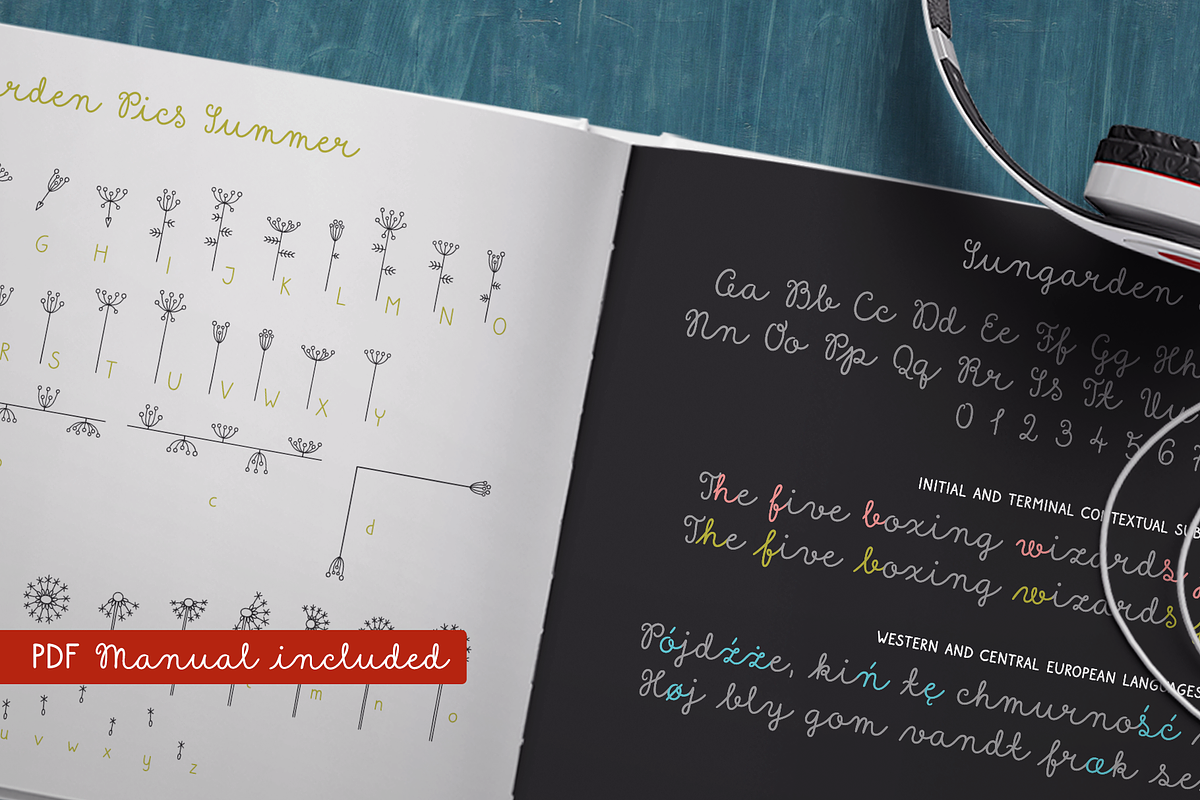 Pics Summer
G H I J K L M N O
R S T U V W X Y
c
d
PDF Manual included
m n o
u v w x y z
Sungarden
Aa Bb Cc Dd Ee Ff Gg Hh
Nn Oo Pp Qq Rr Ss Tt Uu
0 1 2 3 4 5 6
INITIAL AND TERMINAL CONTEXTUAL
The five boxing wizards
The five boxing wizards
WESTERN AND CENTRAL EUROPEAN LANGUAGES
Pójdźże, kiń tę chmurność
Høj bly gom vandt fræk